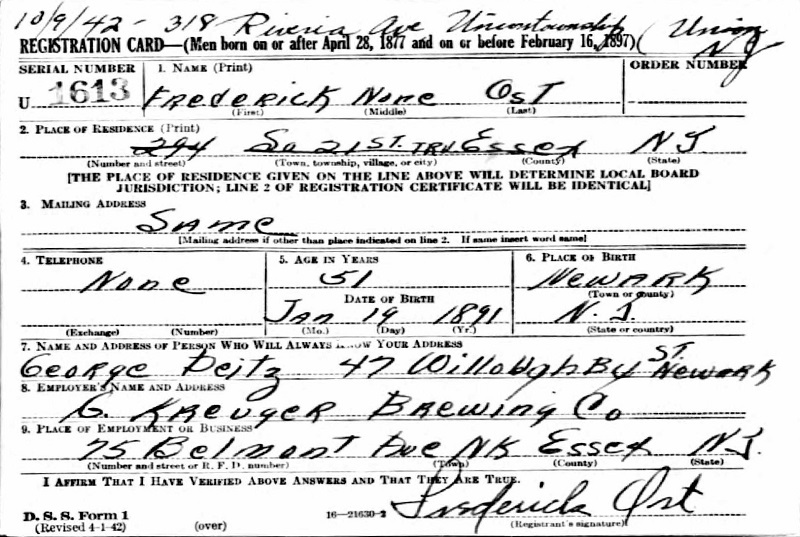 10/9/42 - 318 Riveria Ave Uniontownship (Union NJ
REGISTRATION CARD—(Men born on or after April 28, 1877 and on or before February 16, 1897)
SERIAL NUMBER 1. NAME (Print) ORDER NUMBER
U 1613 FREDERICK NONE OST
(First) (Middle) (Last)
2. PLACE OF RESIDENCE (Print)
294 So 21 ST. Essex NJ
(Number and street) (Town, township, village, or city) (County) (State)
[THE PLACE OF RESIDENCE GIVEN ON THE LINE ABOVE WILL DETERMINE LOCAL BOARD
JURISDICTION; LINE 2 OF REGISTRATION CERTIFICATE WILL BE IDENTICAL]
3. MAILING ADDRESS
SAME
[Mailing address if other than place indicated on line 2. If same insert word same]
4. TELEPHONE 5. AGE IN YEARS 6. PLACE OF BIRTH
NONE 51 NEWARK
DATE OF BIRTH (Town or county)
JAN 19 1891 N. J.
(Exchange) (Number) (Mo.) (Day) (Yr.) (State or country)
7. NAME AND ADDRESS OF PERSON WHO WILL ALWAYS KNOW YOUR ADDRESS
George Deitz 47 WilloughBy ST. Newark
8. EMPLOYER'S NAME AND ADDRESS
G. KREUGER BREWING Co
9. PLACE OF EMPLOYMENT OR BUSINESS
75 Belmont Ave NK Essex N.J.
(Number and street or R. F. D. number) (Town) (County) (State)
I AFFIRM THAT I HAVE VERIFIED ABOVE ANSWERS AND THAT THEY ARE TRUE.
Frederick Ost
D. S. S. Form 1 16—21630-2 (Registrant's signature)
(Revised 4-1-42) (over)